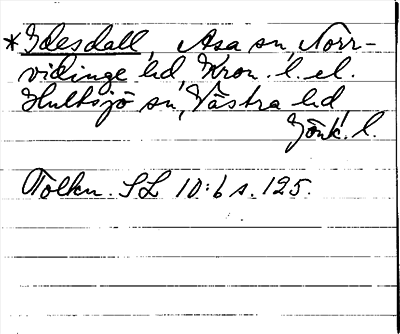 *Idesdall, Asa sn, Norr-
vidinge hd, Kron. l. el.
Hultsjö sn, Västra hd,
Jönk. l.
Tolkn. SL 10:6 s. 125.